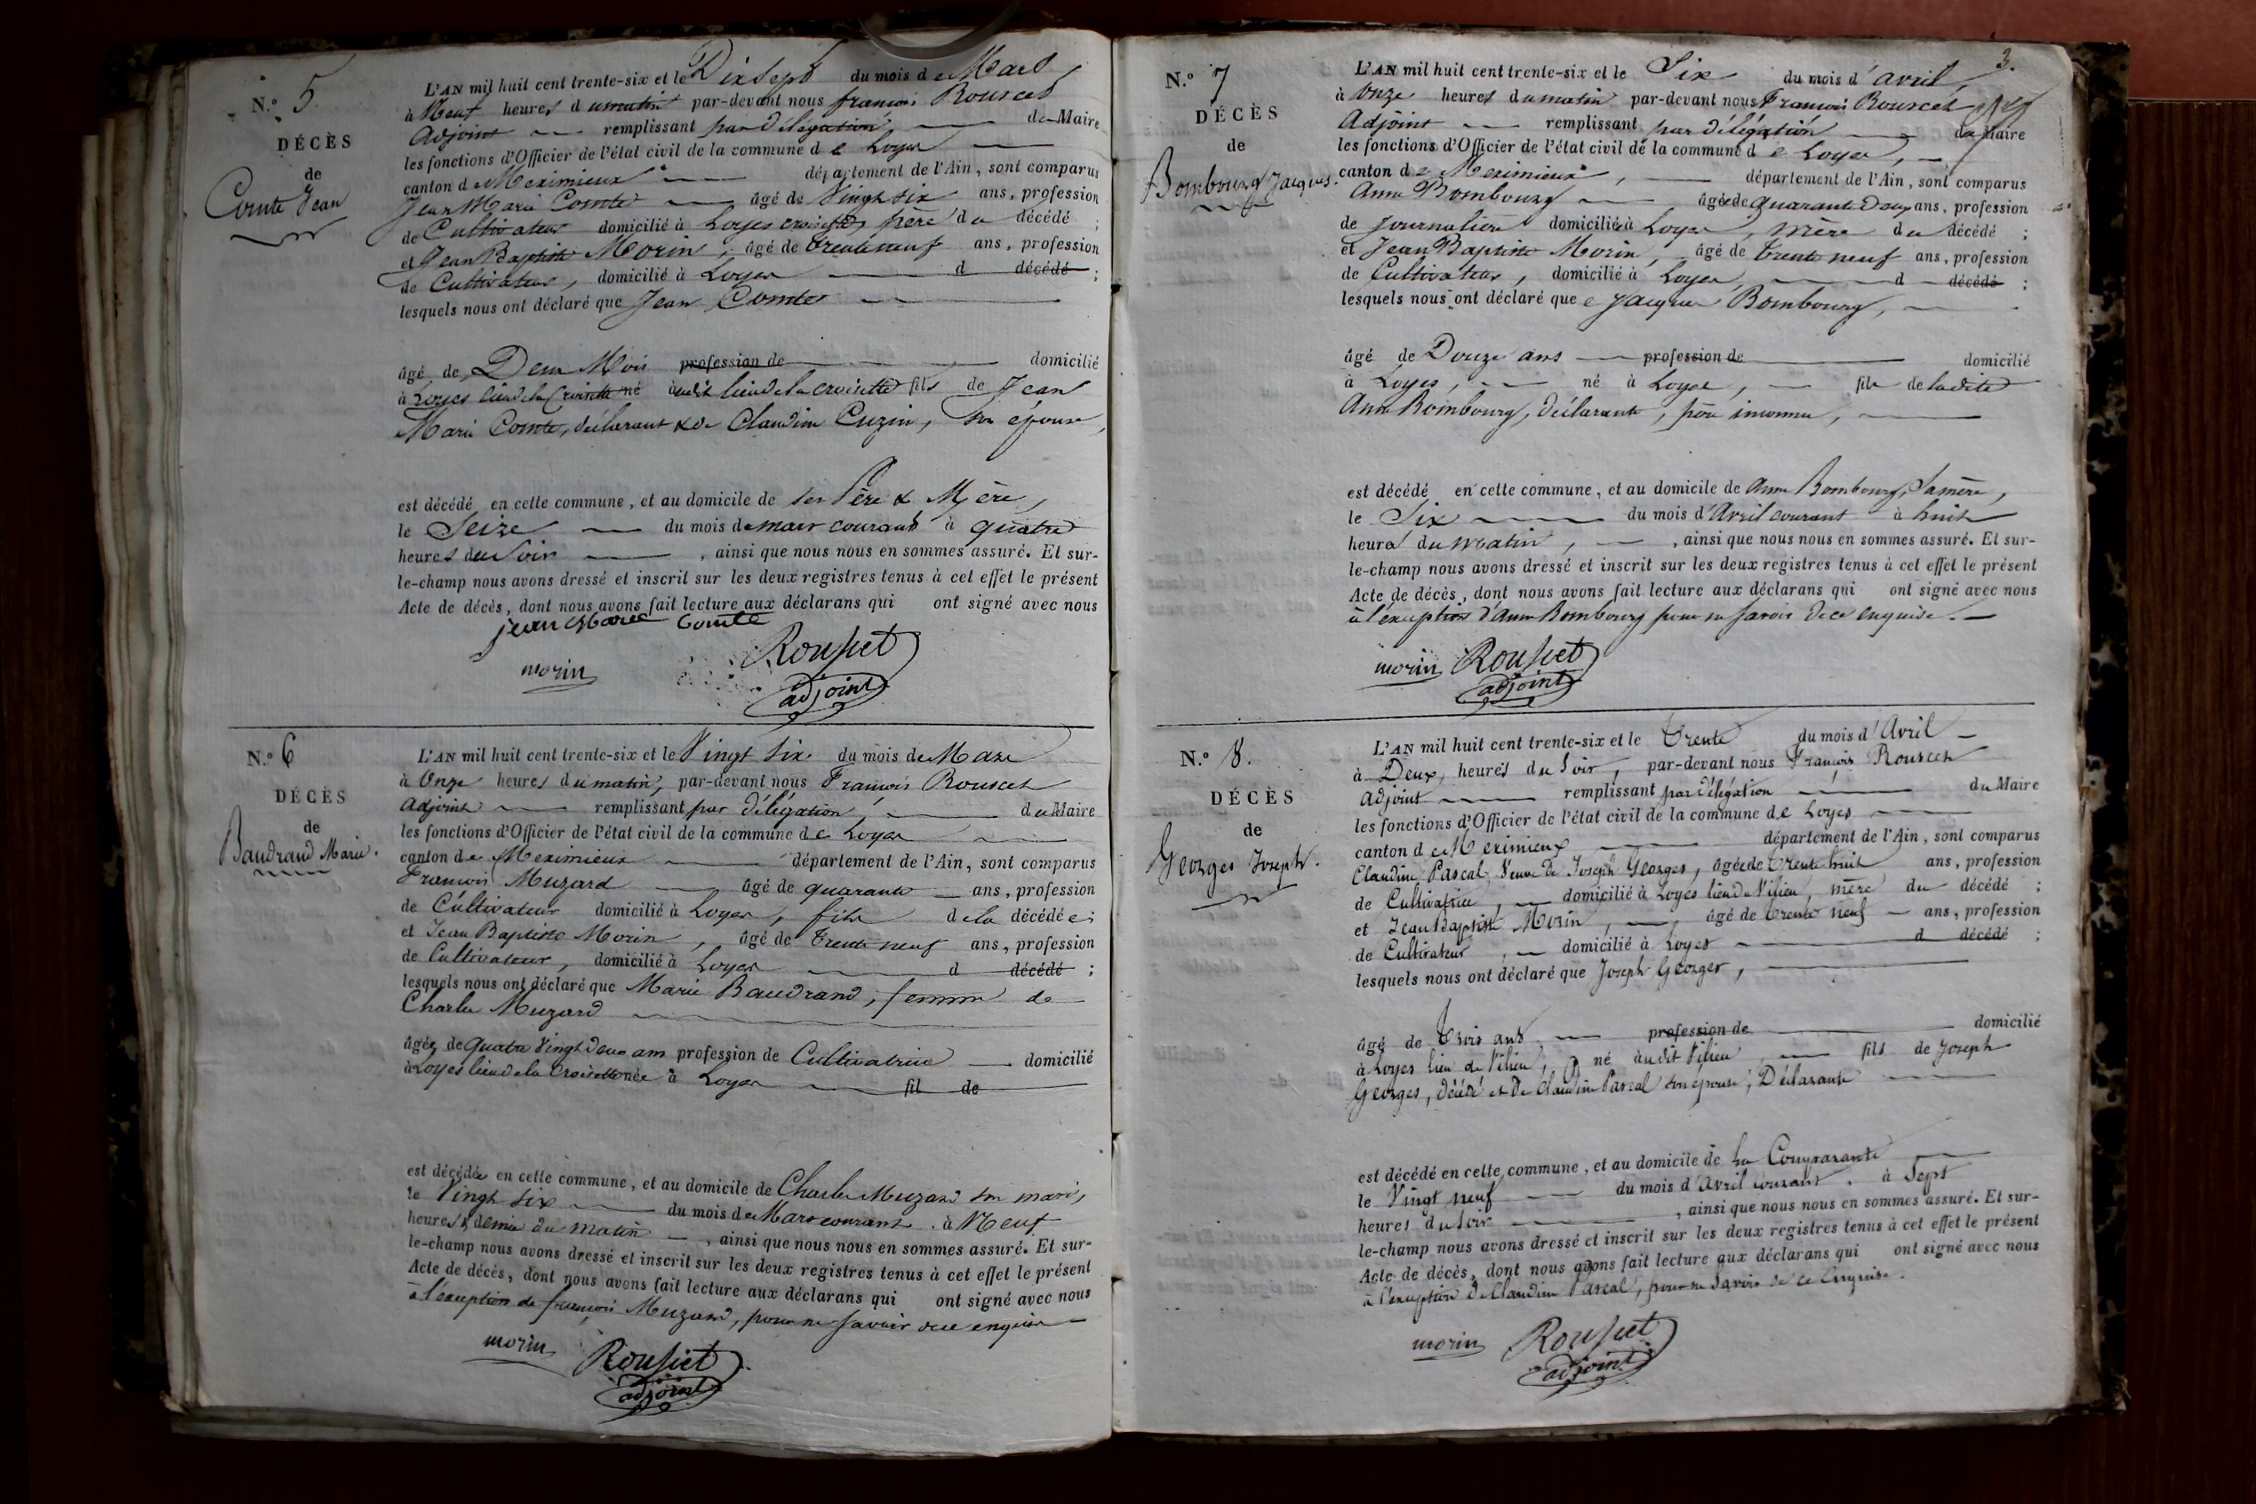 N.° 5
DÉCÈS
de
Comte Jean
L'AN mil huit cent trente-six et le Dix Sept du mois de Mars
à Neuf heures du matin par-devant nous françois Rousset
Adjoint remplissant par délégation du Maire
les fonctions d'Officier de l'état civil de la commune de Loyes
canton de Meximieux département de l'Ain, sont comparus
Jean Marie Comte âgé de Vingt six ans, profession
de Cultivateur domicilié à Loyes croisette, père du décédé ;
et Jean Baptiste Morin, âgé de trente neuf ans, profession
de Cultivateur, domicilié à Loyes d décédé ;
lesquels nous ont déclaré que Jean Comte
âgé de Deux Mois profession de domicilié
à Loyes lieu de la Croisette né audit lieu de la croisette fils de Jean
Marie Comte, déclarant & de Claudine Cuzin, son épouse,
est décédé en cette commune, et au domicile de ses Père & Mère,
le Seize du mois de mars courant à quatre
heures du Soir, ainsi que nous nous en sommes assuré. Et sur-
le-champ nous avons dressé et inscrit sur les deux registres tenus à cet effet le présent
Acte de décès, dont nous avons fait lecture aux déclarans qui ont signé avec nous
jean Marie Comte
morin Rousset
adjoint
N.° 6
DÉCÈS
de
Baudrand Marie.
L'AN mil huit cent trente-six et le Vingt Six du mois de Mars
à Onze heures du matin, par-devant nous François Rousset
Adjoint remplissant par délégation, du Maire
les fonctions d'Officier de l'état civil de la commune de Loyes
canton de Meximieux département de l'Ain, sont comparus
François Muzard âgé de quarante ans, profession
de Cultivateur domicilié à Loyes, fils de la décédée ;
et Jean Baptiste Morin, âgé de trente neuf ans, profession
de Cultivateur, domicilié à Loyes d décédé ;
lesquels nous ont déclaré que Marie Baudrand, femme de
Charles Muzard
âgée de quatre Vingt Deux ans profession de Cultivatrice domicilié
à Loyes lieu de la Croisette née à Loyes fil de
est décédée en cette commune, et au domicile de Charles Muzard son mari,
le Vingt six du mois de Mars courant à Neuf
heures & demie du matin, ainsi que nous nous en sommes assuré. Et sur-
le-champ nous avons dressé et inscrit sur les deux registres tenus à cet effet le présent
Acte de décès, dont nous avons fait lecture aux déclarans qui ont signé avec nous
à l'exception de françois Muzard, pour ne savoir de ce enquis
morin Rousset
adjoint
3.
N.° 7
DÉCÈS
de
Bombourg Jacques.
L'AN mil huit cent trente-six et le Six du mois d'avril,
à Onze heures du matin par-devant nous François Rousset
Adjoint remplissant par délégation du Maire
les fonctions d'Officier de l'état civil de la commune de Loyes,
canton de Meximieux, département de l'Ain, sont comparus
Anne Bombourg âgée de quarante Deux ans, profession
de Journalière domiciliée à Loyes, mère du décédé ;
et Jean Baptiste Morin, âgé de trente neuf ans, profession
de Cultivateur, domicilié à Loyes, d décédé ;
lesquels nous ont déclaré que Jacques Bombourg,
âgé de Douze ans profession de domicilié
à Loyes, né à Loyes, fils de ladite
Anne Bombourg, déclarante, père inconnu,
est décédé en cette commune, et au domicile de Anne Bombourg, Sa mère,
le Six du mois d'Avril courant à huit
heures du matin, ainsi que nous nous en sommes assuré. Et sur-
le-champ nous avons dressé et inscrit sur les deux registres tenus à cet effet le présent
Acte de décès, dont nous avons fait lecture aux déclarans qui ont signé avec nous
à l'exception d'Anne Bombourg pour ne savoir de ce enquise.
morin Rousset
adjoint
N.° 8.
DÉCÈS
de
Georges Joseph.
L'AN mil huit cent trente-six et le Trente du mois d'Avril
à Deux heures du Soir, par-devant nous François Rousset
Adjoint remplissant par délégation du Maire
les fonctions d'Officier de l'état civil de la commune de Loyes
canton de Meximieux département de l'Ain, sont comparus
Claudine Pascal Veuve de Joseph Georges, âgée de trente huit ans, profession
de Cultivatrice, domicilié à Loyes lieu de Vilieu, mère du décédé ;
et Jean Baptiste Morin, âgé de trente neuf ans, profession
de Cultivateur, domicilié à Loyes d décédé ;
lesquels nous ont déclaré que Joseph Georges,
âgé de trois ans profession de domicilié
à Loyes lieu de Vilieu, né audit Vilieu fils de Joseph
Georges, décédé et de Claudine Pascal son épouse, Déclarante
est décédé en cette commune, et au domicile de la Comparante
le Vingt neuf du mois d'Avril courant. à Sept
heures du soir, ainsi que nous nous en sommes assuré. Et sur-
le-champ nous avons dressé et inscrit sur les deux registres tenus à cet effet le présent
Acte de décès, dont nous avons fait lecture aux déclarans qui ont signé avec nous
à l'exception de Claudine Pascal, pour ne savoir de ce Enquise.
morin Rousset
adjoint